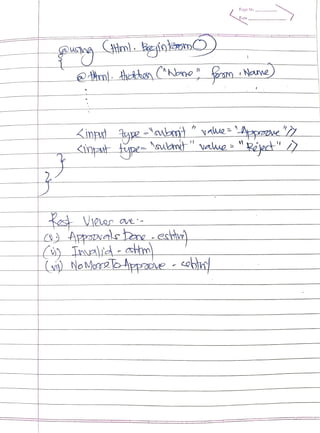 Page No.
Date
@using (Html. BeginForm())
{
@Html. ("Name", form . Name)
<input type = "submit" value = "Approve"//>
<input type = "submit" value = "Reject" //>
}
}
Rest Views are:-
(v) ApprovalsDone - cshtml
(vi) Invalid - cshtml
(vii) NoMoreToApprove - cshtml